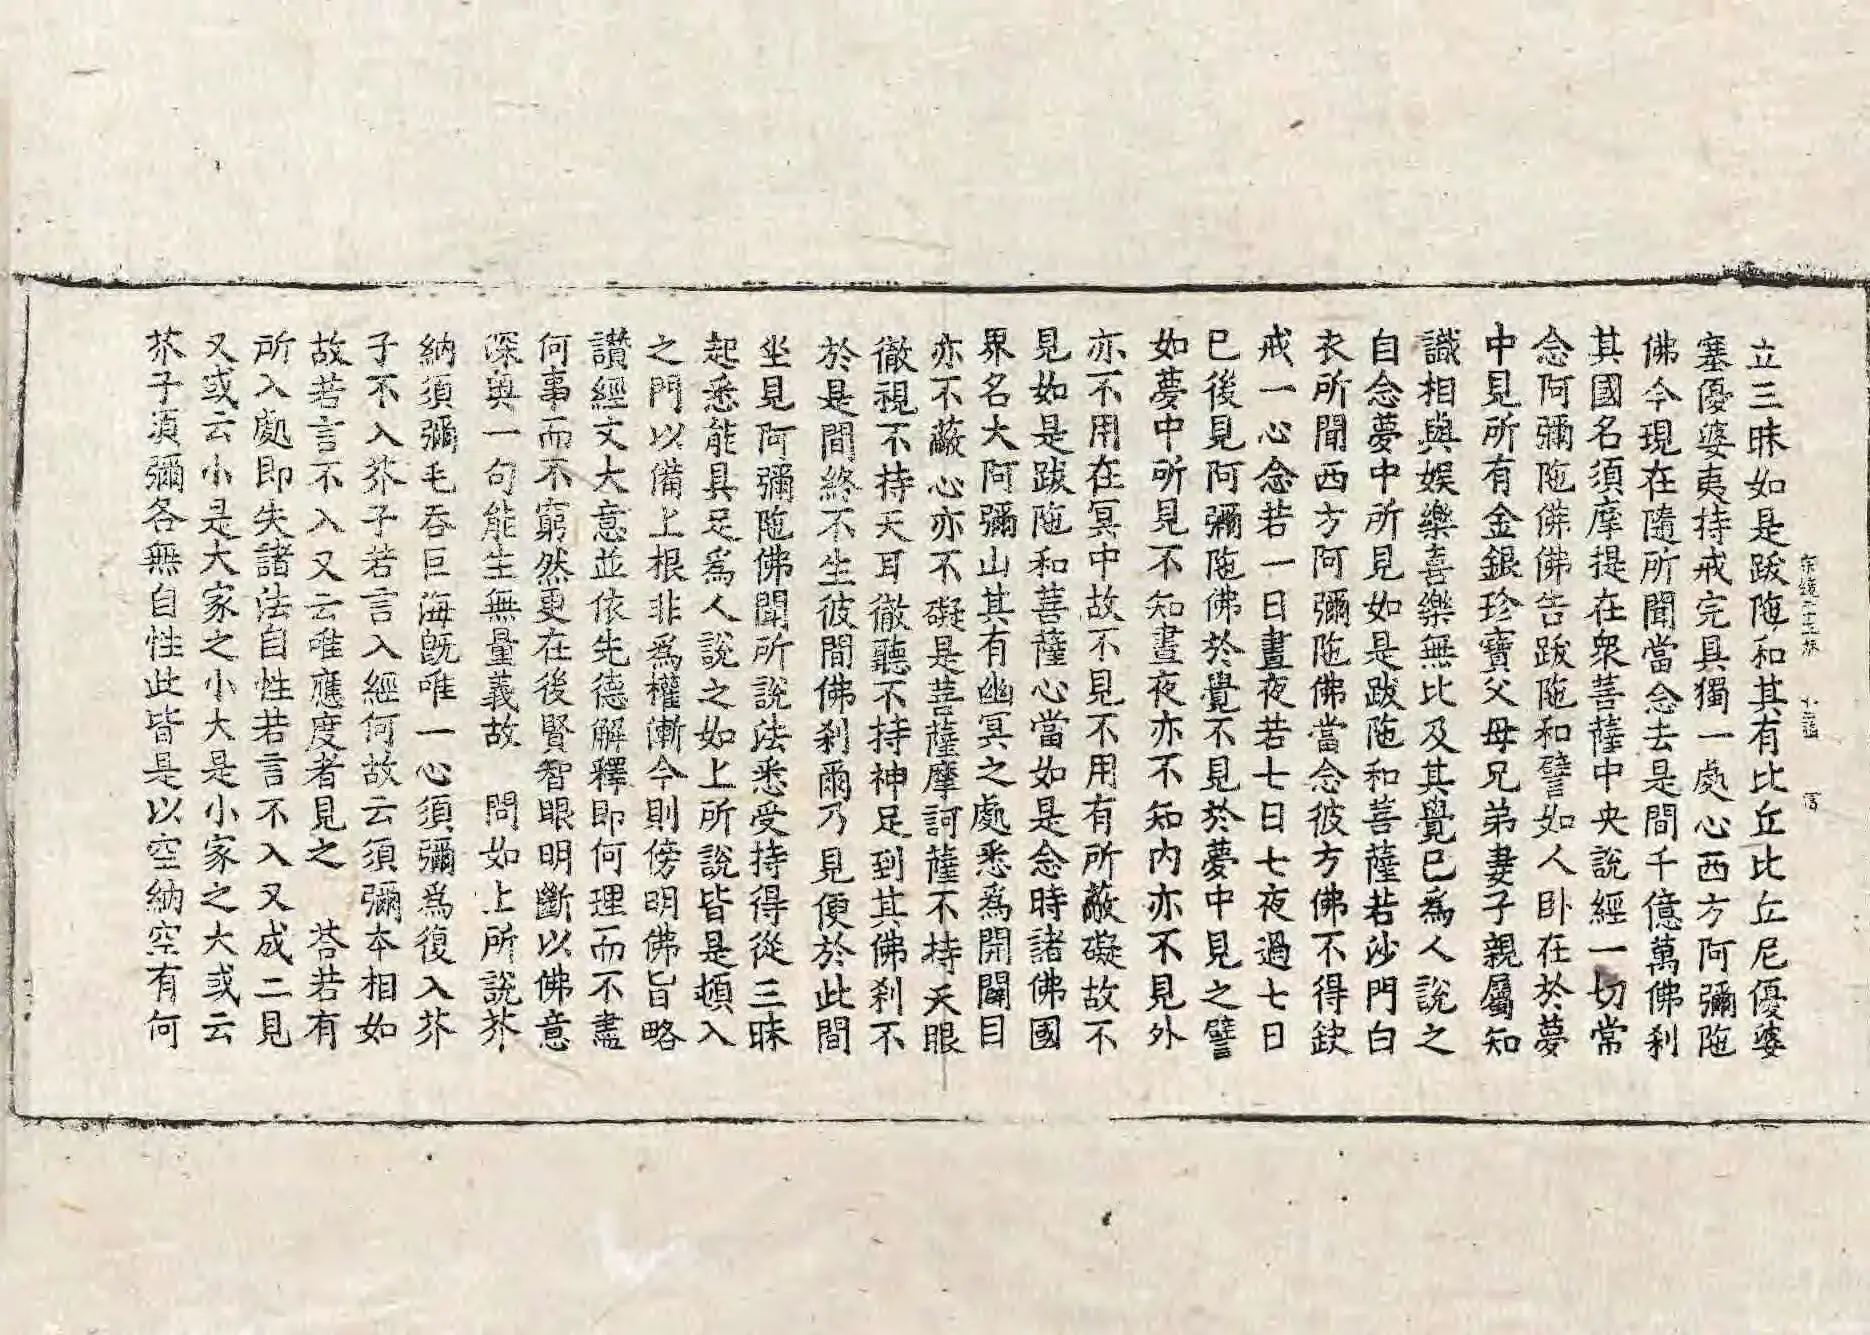 立三昧如是跋陁和其有比丘比丘尼優婆
塞優婆夷持戒完具獨一處心西方阿彌陁
佛今現在隨所聞當念去是間千億萬佛刹
其國名須摩提在衆菩薩中央說經一切常
念阿彌陁佛佛告跋陁和譬如人卧在於夢
中見所有金銀珍寶父母兄弟妻子親屬知
識相與娛樂喜樂無比及其覺已爲人說之
自念夢中所見如是跋陁和菩薩若沙門白
衣所聞西方阿彌陁佛當念彼方佛不得缺
戒一心念若一日晝夜若七日七夜過七日
已後見阿彌陁佛於覺不見於夢中見之譬
如夢中所見不知晝夜亦不知內亦不見外
亦不用在冥中故不見不用有所蔽礙故不
見如是跋陁和菩薩心當如是念時諸佛國
界名大阿彌山其有幽冥之處悉爲開闢目
亦不蔽心亦不礙是菩薩摩訶薩不持天眼
徹視不持天耳徹聽不持神足到其佛刹不
於是間終不生彼間佛刹爾乃見便於此間
坐見阿彌陁佛聞所說法悉受持得從三昧
起悉能具足爲人說之如上所說皆是頓入
之門以備上根非爲權漸今則傍明佛旨略
讚經文大意並依先德解釋即何理而不盡
何事而不窮然更在後賢智眼明斷以佛意
深奧一句能生無量義故　問如上所說芥
納須彌毛吞巨海旣唯一心須彌爲復入芥
子不入芥子若言入經何故云須彌本相如
故若言不入又云唯應度者見之　荅若有
所入處即失諸法自性若言不入又成二見
又或云小是大家之小大是小家之大或云
芥子湏彌各無自性此皆是以空納空有何